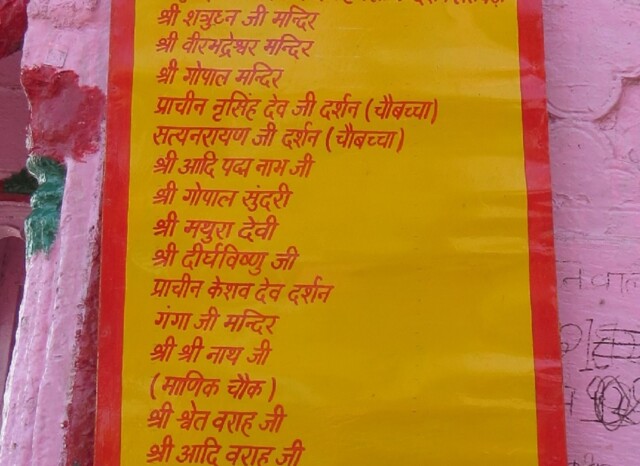 श्री शत्रुघ्न जी मन्दिर
श्री वीरभद्रेश्वर मन्दिर
श्री गोपाल मन्दिर
प्राचीन नृसिंह देव जी दर्शन (चौबच्चा)
सत्यनरायण जी दर्शन (चौबच्चा)
श्री आदि पद्म नाभ जी
श्री गोपाल सुंदरी
श्री मथुरा देवी
श्री दीर्घविष्णु जी
प्राचीन केशव देव दर्शन
गंगा जी मन्दिर
श्री श्री नाथ जी
(माणिक चौक)
श्री श्वेत वराह जी
श्री आदि वराह जी